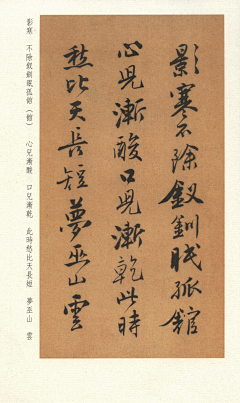 影寒不除釵釧眠孤舘
心兒漸酸口兒漸乾此時
愁比天長短夢巫山雲
影寒　不除釵釧眠孤舘（館）　心兒漸酸　口兒漸乾　此時愁比天長短　夢巫山　雲